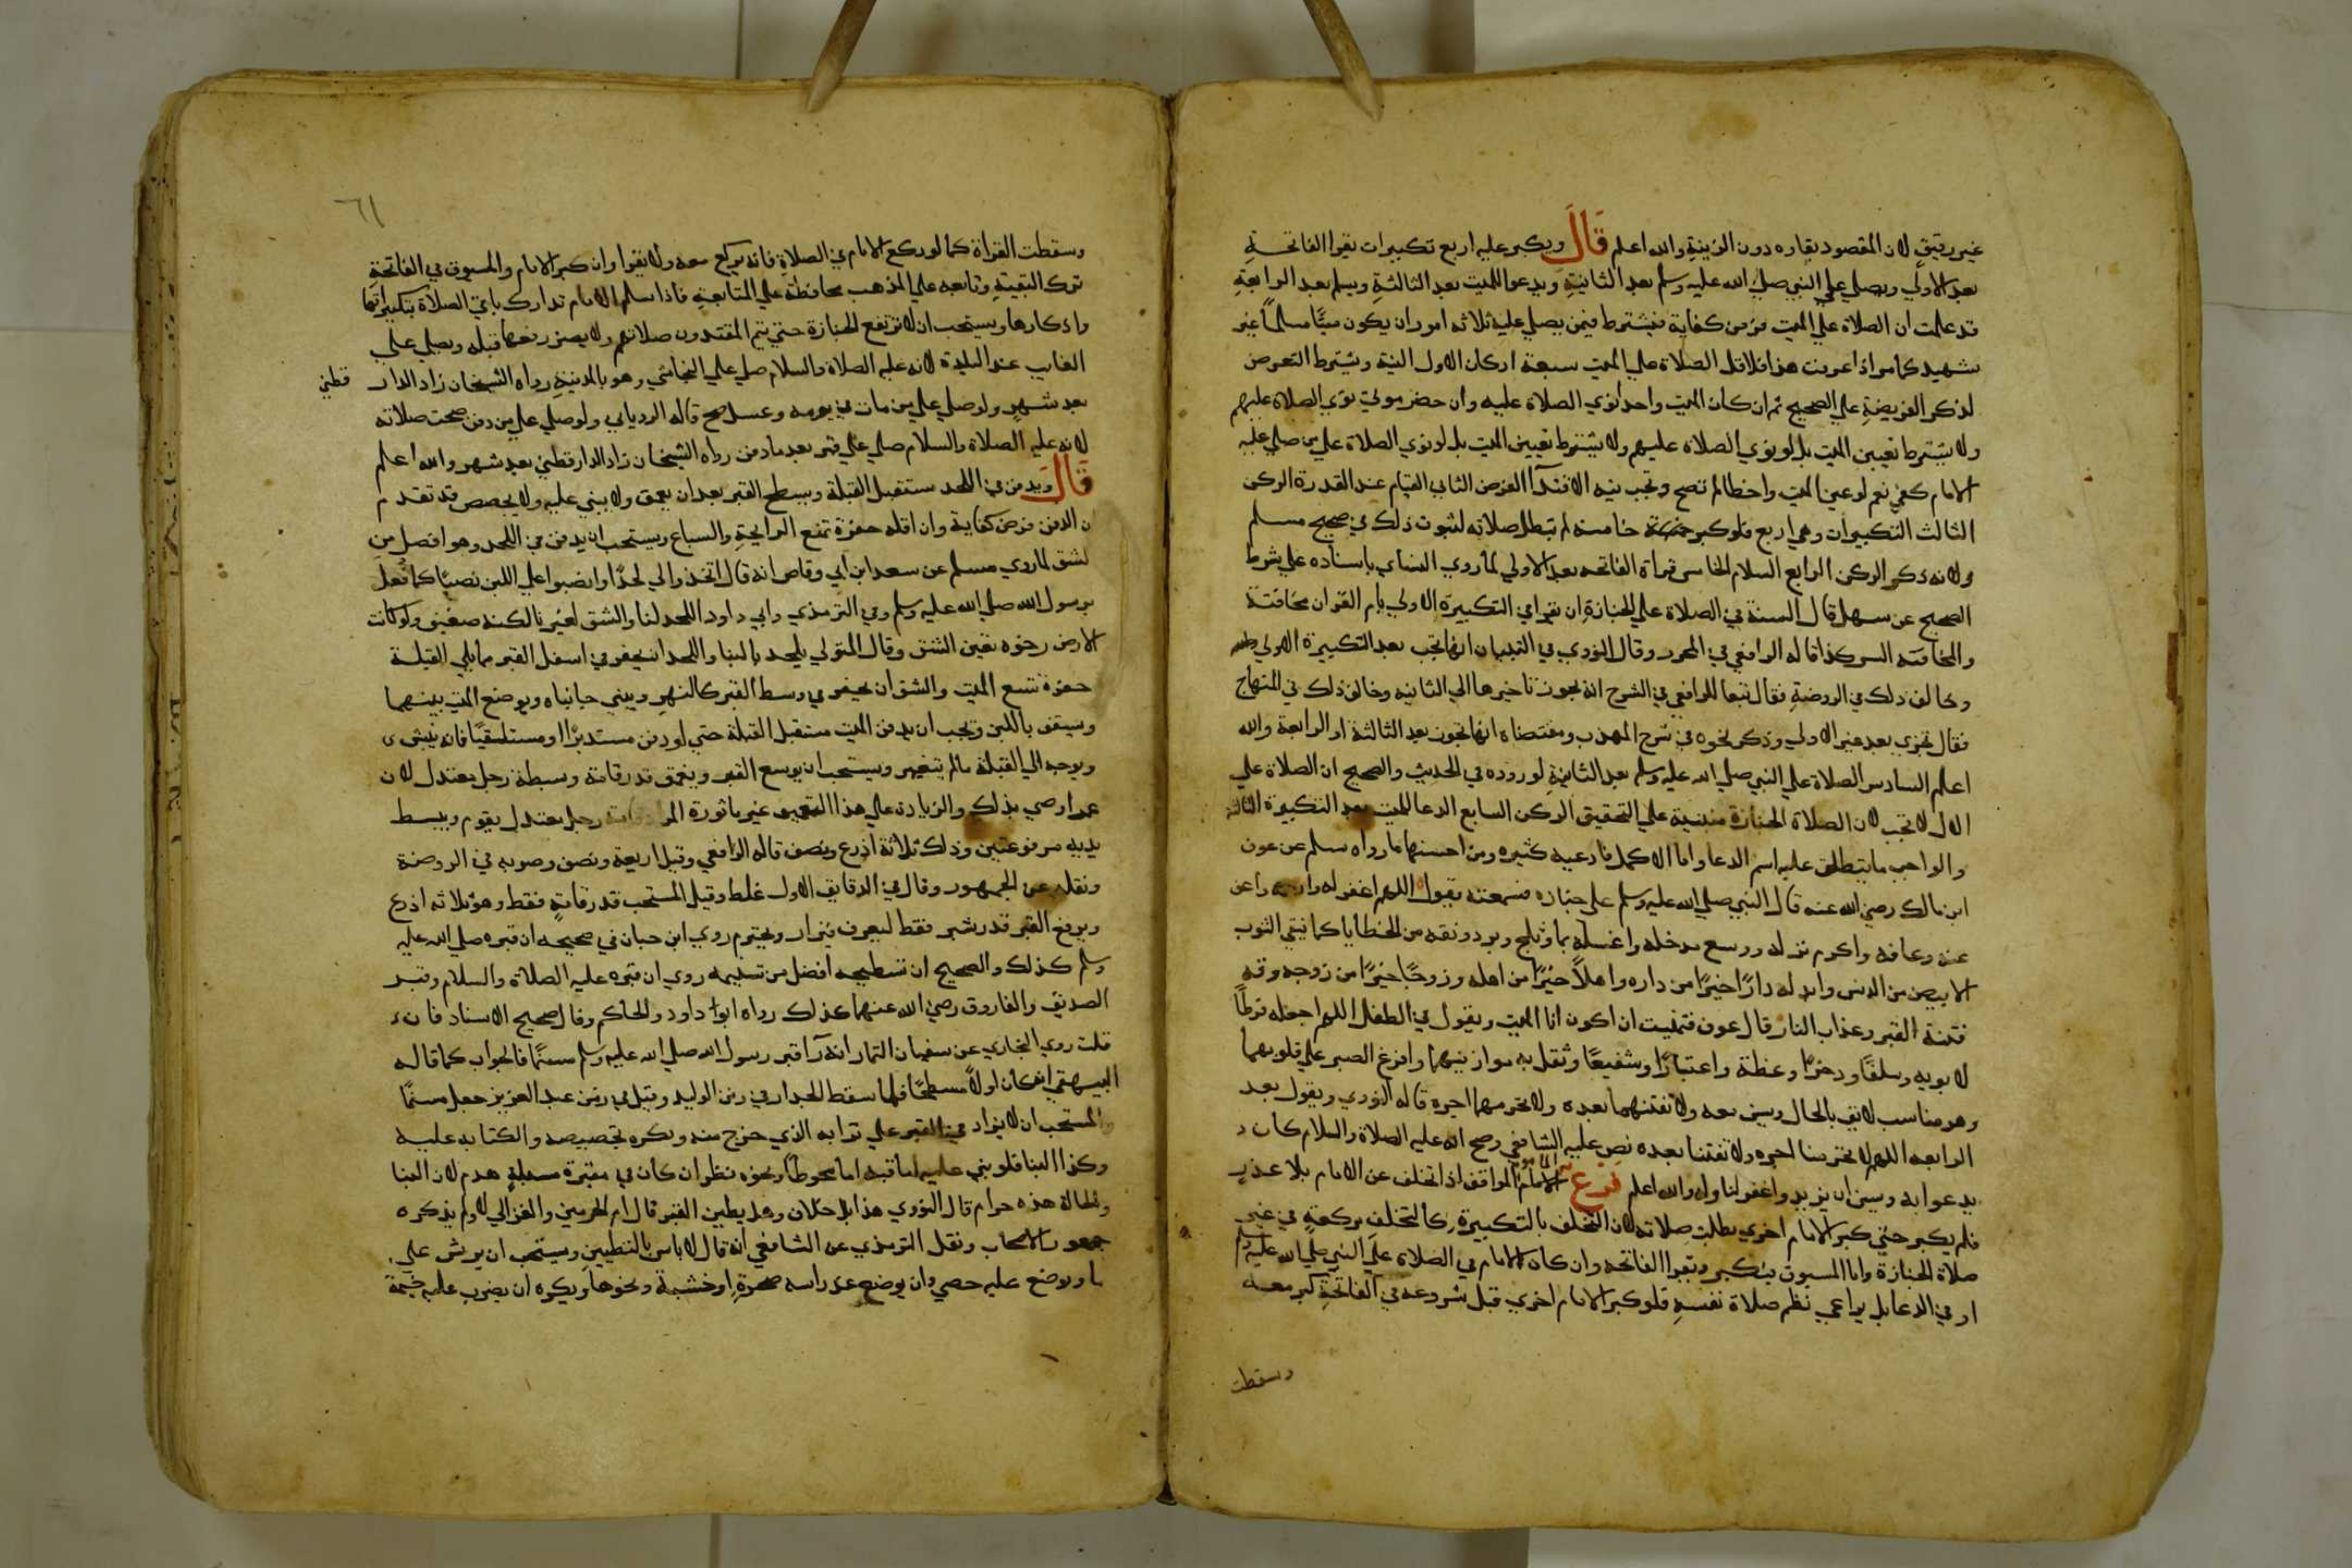 غير رقيق لان المقصود بقاره دون الزينة والله اعلم قال ويكبر عليه اربع تكبيرات يقرا الفاتحة
بعد الاولي ويصلي علي النبي صلي الله عليه وسلم بعد الثانية ويدعو للميت بعد الثالثة ويسلم بعد الرابعة
قد علمت ان الصلاة علي الميت فرض كفاية فيشترط فيمن يصلي عليه ثلاثه امور ان يكون ميتا مسلما غير
شهيد كما مر اذا عرفت هذا فلاقل الصلاة علي الميت سبعة اركان الاول النية ويشترط التعرض
لذكر الفريضة علي الصحيح ثم ان كان الميت واحد انوي الصلاة عليه وان حضر موتي نوي الصلاة عليهم
ولا يشترط تعيين الميت بل لو نوي الصلاة عليهم ولا يشترط تعيين الميت بل لو نوي الصلاة علي من صلي عليه
الامام كفي نعم لو عين الميت واخطا لم تصح وتجب نيه الاقتدآ الفرض الثاني القيام عند القدرة الركن
الثالث التكبيرات وهي اربع فلو كبر خامسة لم تبطل صلاته لثبوت ذلك في صحيح مسلم
ولانه ذكر الركن الرابع السلام الخامس قراة الفاتحه بعد الاولي لما روي النساي باسناده علي شرط
الصحيح عن سهل قال السنة في الصلاة علي الجنازة ان يقرا في التكبيرة الاولي بام القران مخافتة
والمخافتة السر كذا قاله الرافعي في المحرر وقال النووي في التبيان انها تجب بعد التكبيرة الاولي
وخالف ذلك في الروضة فقال تبعا للرافعي في الشرح انه يجوز تاخيرها الي الثانيه وخالف ذلك في المنهاج
فقال تجزي بعد غير الاولي وذكر نحوه في شرح المهذب ومقتضاه انها تجوز بعد الثالثة او الرابعة والله
اعلم السادس الصلاة علي النبي صلي الله عليه وسلم بعد الثانية لوروده في الحديث والصحيح ان الصلاة علي
الال لا تجب لان الصلاة الجنازة مبنية علي التحقيق الركن السابع الدعا للميت بعد التكبيرة الثالثة
والواجب ما ينطلق عليه اسم الدعا واما الاكمل فادعيه كثيره ومن احسنها ما رواه مسلم عن عون
ابن مالك رضي الله عنه قال النبي صلي الله عليه وسلم علي جنازه فسمعته يقول اللهم اغفر له وارحمه واعف
عنه وعافه واكرم نزله ووسع مدخله واغسله بما وثلج وبرد ونقه من الخطايا كما ينقي الثوب
الابيض من الدنس وابد له دارًا خيرًا من داره واهلًا خيرًا من اهله وزوجًا خيرًا من زوجه وقه
فتنة القبر وعذاب النار قال عوف فتمنيت ان اكون انا الميت ويقول في الطفل اللهم اجعله فرطًا
لابويه وسلفًا وذخرًا وعظة واعتبارًا وشفيعًا وثقل به موازينهما وافرغ الصبر علي قلوبهما
وهو مناسب لايق بالحال وسن معه ولا تفتنهما بعده ولا تحرمهما اجره قاله النووي ويقول بعد
الرابعه اللهم لا تحرمنا اجره ولا تفتنا بعده نص عليه الشافعي وصح انه عليه الصلاة والسلام كان
يدعوا به وسن ان يزيد واغفر لنا وله والله اعلم فرع الماموم الموافق اذا تخلف عن الامام بلا عذر
فلم يكبر حتي كبر الامام اخري بطلت صلاته لان التخلف بالتكبيرة كالتخلف بركعة في غير
صلاة الجنازة واما المسبوق يكبر ويقرا الفاتحه وان كان الامام في الصلاة علي النبي صلي الله عليه وسلم
او في الدعا بل يراعي نظم صلاة نفسه فلو كبر الامام اخري قبل شروعه في الفاتحة كبر معه
وسقطت
٦١
وسقطت القراة كما لو ركع الامام في الصلاة فانه يركع معه ولا يقرا وان كبر الامام والمسبوق في الفاتحة
ترك البقية وتابعه علي المذهب محافظة علي المتابعة فاذا سلم الامام تدارك باقي الصلاة بتكبيراتها
واذكارها ويستحب ان لا ترفع الجنازة حتي يتم المقتدون صلاتهم ولا يضر رفعها قبله ويصلي علي
الغايب عند البلدة لانه عليه الصلاة والسلام صلي علي النجاشي وهو بالمدينة رواه الشيخان زاد الدار قطني
بعد شهر ولو صلي علي من مات في يومه وغسل صح قاله الروياني ولو صلي علي من دفن صحت صلاته
لانه عليه الصلاة والسلام صلي علي قبر بعد ما دفن رواه الشيخان زاد الدارقطني بعد شهر والله اعلم
قال ويدفن في اللحد مستقبل القبلة ويسطح القبر بعد ان يعمق ولا يبني عليه ولا يجصص قد تقدم
ن الدفن فرض كفاية وان اقله حفرة تمنع الرايحة والسباع ويستحب ان يدفن في اللحد وهو افضل من
لشق لما روي مسلم عن سعد ابن ابي وقاص انه قال اتخذوا لي لحدًا وانصبوا علي اللبن نصبًا كما فعل
برسول الله صلي الله عليه وسلم وفي الترمذي وابي داود اللحد لنا والشق لغيرنا لكنه ضعيف ولو كانت
الارض رخوه تعين الشق وقال المتولي يلحد بالبنا واللحد ان يحفر في اسفل القبر مما يلي القبلة
حفرة تسع الميت والشق ان يحفر في وسط القبر كالنهر ويبني جانباه ويوضع الميت بينهما
وسيقف باللبن ويجب ان يدفن الميت مستقبل القبلة حتي لو دفن مستدبرًا او مستلقيًا فانه ينبش
ويوجه الي القبلة ما لم يتغير ويستحب ان يوسع القبر ويعمق قدر قامة وبسطة رجل معتدل لان
عمر اوصي بذلك والزيادة علي هذا التعميق غير ماثورة رجل معتدل يقوم ويبسط
يديه مرفوعتين وذلك ثلاثة اذرع ونصف قاله الرافعي وقيل اربعة ونصف وصوبه في الروضة
ونقله عن الجمهور وقال في الدقايق الاول غلط وقيل المستحب قدر قامة فقط وهو ثلاثه اذرع
ويرفع القبر قدر شبر فقط ليعرف فيزار ويحترم روي ابن حبان في صحيحه ان قبره صلي الله عليه
وسلم كذلك والصحيح ان تسطيحه افضل من تسنيمه روي ان قبره عليه الصلاة والسلام وقبر
الصديق والفاروق رضي الله عنهما كذلك رواه ابوا داود والحاكم وقال صحيح الاسناد فان
قلت روي البخاري عن سفيان التمار انه رآ قبر رسول الله صلي الله عليه وسلم مسنمًا فالجواب كما قاله
البيهقي انه كان اولًا مسطحًا فلما سقط الجدار في زمن الوليد وقيل في زمن عبد العزيز جعل مسنمًا
والمستحب ان لا يزاد في القبر علي ترابه الذي خرج منه ويكره تجصيصه والكتابه عليه
وكذا البنا فلو بني عليه اما قبه اما محوطًا ونحوه نظر ان كان في مقبرة مسبلة هدم لان البنا
والحالة هذه حرام قال النووي هذا بلا خلاف وهل يطين القبر قال امام الحرمين والغزالي لا ولم يذكره
جمهور الاصحاب ونقل الترمذي عن الشافعي انه قال لا باس بالتطيين ويستحب ان يرش عليه
ما ويوضع عليه حصي وان يوضع عند راسه صخرة او خشبة ونحوها ويكره ان يضرب عليه خيمة